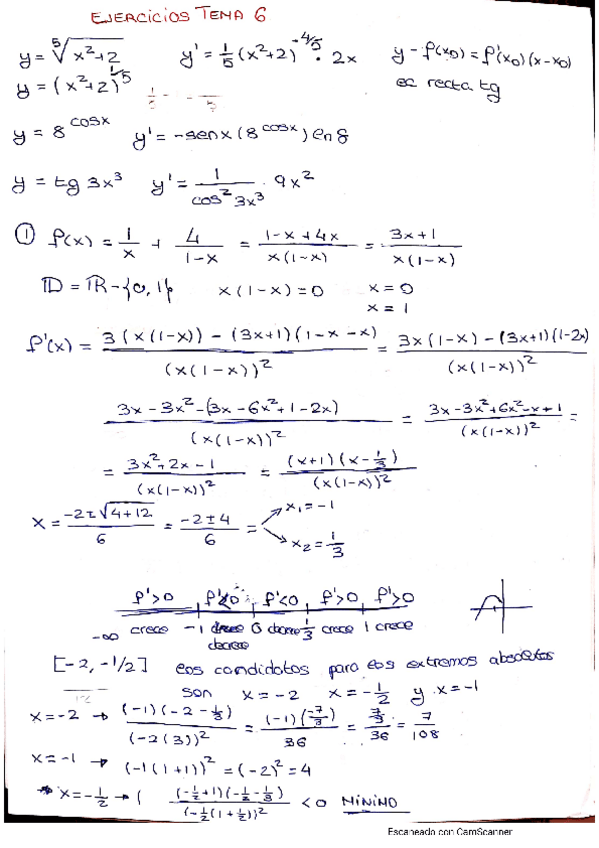 EJERCICIOS TEMA 6
y = ⁵√(x²+2)   y' = 1/5 (x²+2)^(-4/5) · 2x   y - f(x₀) = f'(x₀)(x-x₀)
y = (x²+2)^(1/5)   ec recta tg
y = 8^(cosx)   y' = -senx (8^(cosx)) ln 8
y = tg 3x³   y' = 1/(cos² 3x³) · 9x²
① f(x) = 1/x + 4/(1-x) = (1-x+4x)/(x(1-x)) = (3x+1)/(x(1-x))
D = ℝ-{0,1}   x(1-x)=0   x=0
x=1
f'(x) = (3(x(1-x)) - (3x+1)(1-x-x))/(x(1-x))² = (3x(1-x) - (3x+1)(1-2x))/(x(1-x))²
(3x-3x²-(3x-6x²+1-2x))/(x(1-x))² = (3x-3x²+6x²-x+1)/(x(1-x))² =
= (3x²+2x-1)/(x(1-x))² = ((x+1)(x-1/3))/(x(1-x))²
x = (-2±√(4+12))/6 = (-2±4)/6 = x₁=-1
x₂=1/3
f'>0 f'<0 f'<0 f'>0 f'>0
-∞ crece -1 decrece 0 decrece 1/3 crece 1 crece
[-2, -1/2] los candidatos para los extremos absolutos
son x=-2 x=-1/2 y x=-1
x=-2 → ((-1)(-2-1/3))/(-2(3))² = ((-1)(-7/3))/36 = (7/3)/36 = 7/108
x=-1 → (-1(1+1))² = (-2)² = 4
x=-1/2 → ( ((-1/2+1)(-1/2-1/3))/(-1/2(1+1/2))² <0 MÍNIMO
Escaneado con CamScanner